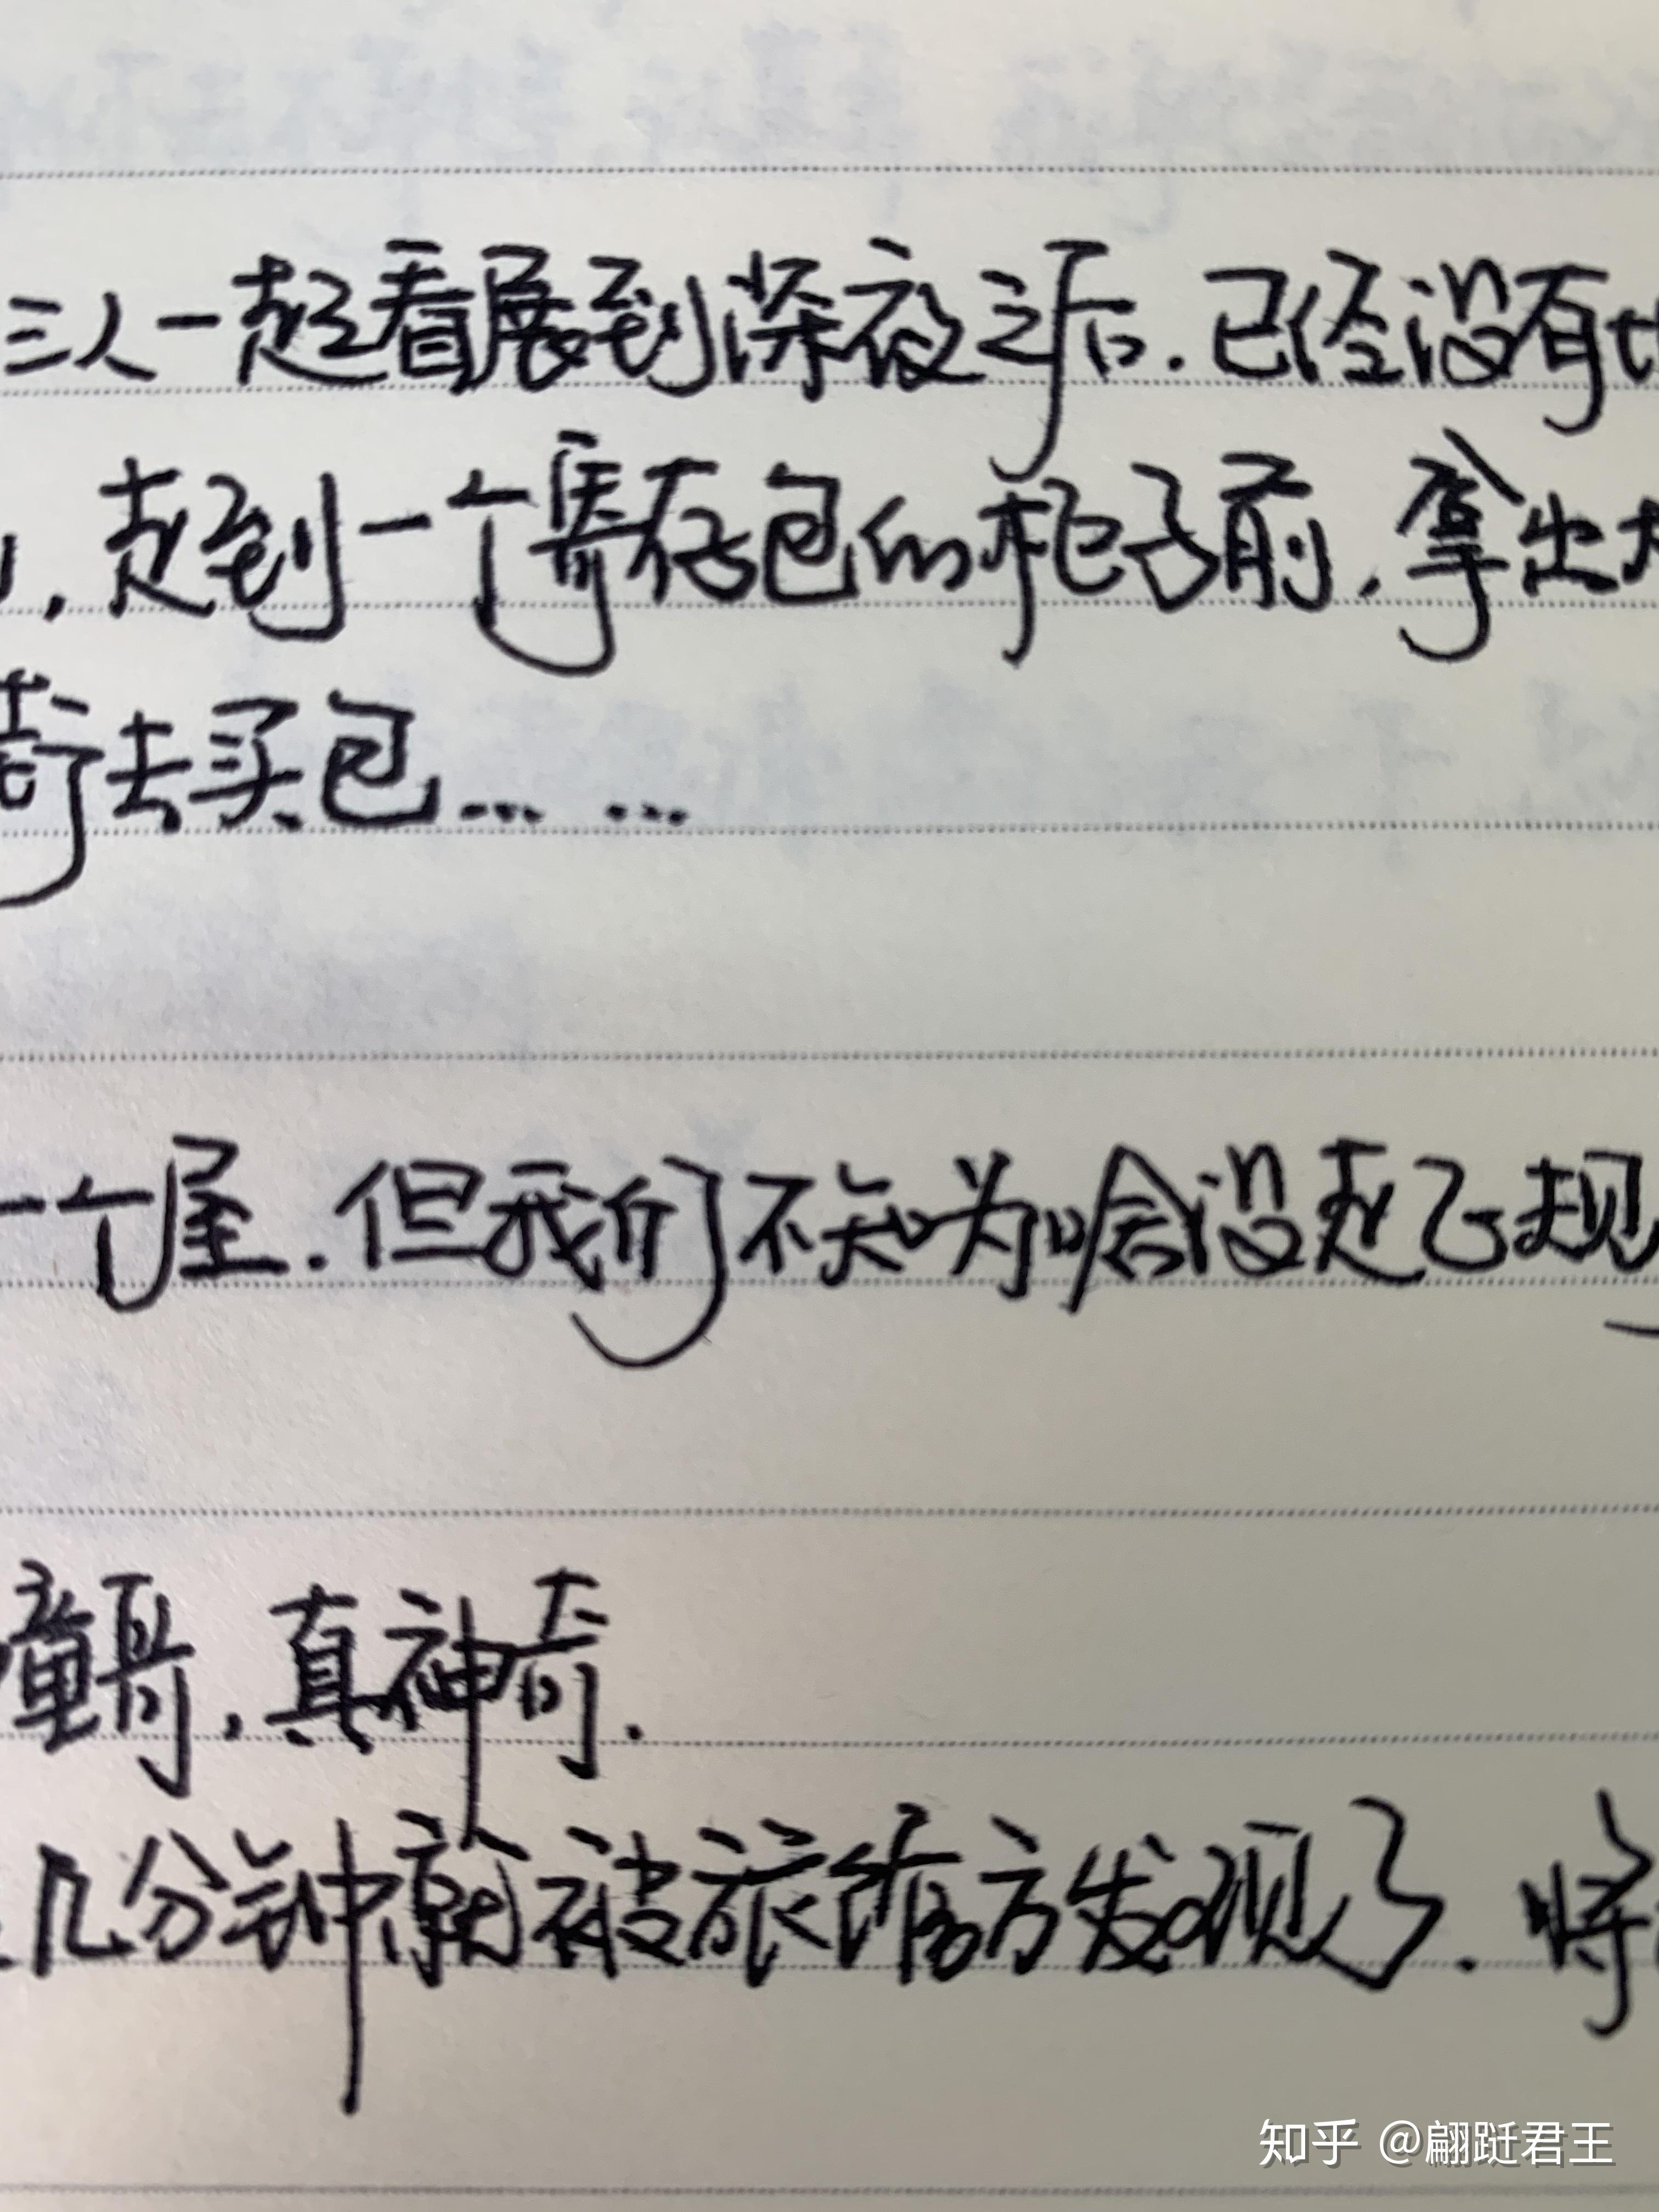 三人一起看展到深夜之后.已经没有
,走到一个寄存包的柜子前,拿出
去买包... ...
一个屋.但我们不知为啥没走了规
瞳哥,真神奇.
几分钟就被旅馆方发现了.将
知乎 @翩跹君王